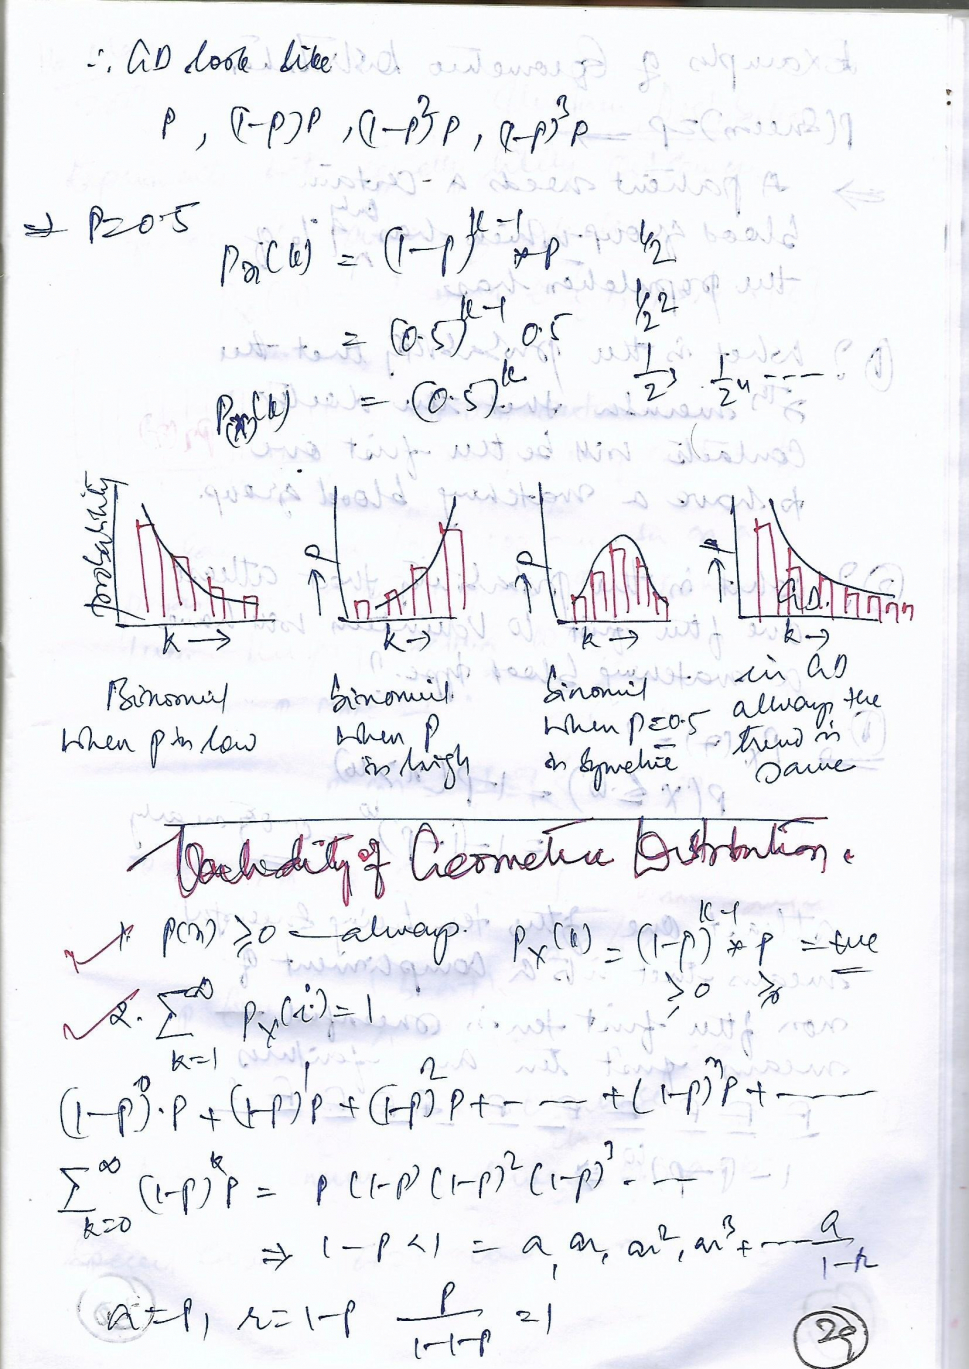 ∴ GD look like
P, (1-P)P, (1-P)²P, (1-P)³P
⇒ P=0.5
Px(k) = (1-P)^(k-1) * P    1/2
= (0.5)^(k-1) 0.5    1/2²
P(x)(k) = (0.5)^k    1/2³  1/2⁴ ----
probability
P
P
P
GD.
k →
k →
k →
k →
Binomial
when p is low
Binomial
when P
is high
Binomial
when P=0.5
is Symetric
in GD
always the
trend is
same
Validity of Geometric Distribution.
1. P(x) ≥ 0 — always.    Px(k) = (1-P)^(k-1) * P = +ve
≥0  ≥0
2. ∑_(k=1)^∞ Px(i) = 1
(1-P)⁰·P + (1-P)¹P + (1-P)²P + - — — + (1-P)^n P + -----
∑_(k=0)^∞ (1-P)^k P = P (1-P) (1-P)² (1-P)³ - - —
⇒ 1-P < 1 = a, ar, ar², ar³ + --- a/(1-r)
a = P, r = 1-P    P/(1-1-P) = 1
29